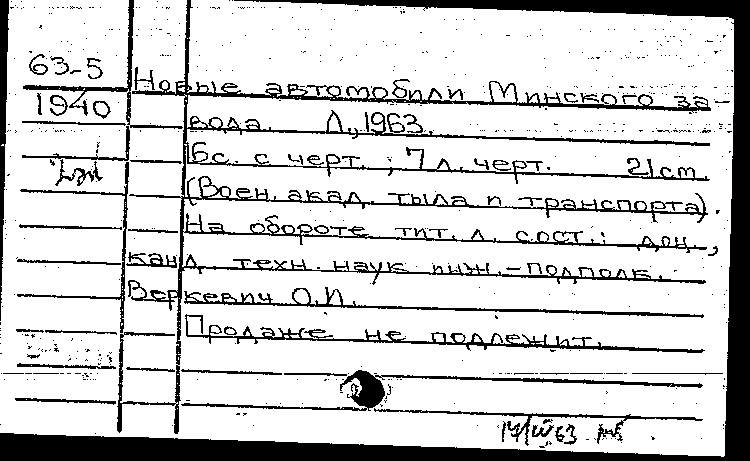 63-5
1940
Новые автомобили Минского за-
вода. Л., 1963.
16с. с черт.; 7 л. черт. 21 cm.
(Воен. акад. тыла и транспорта).
На обороте тит. л. сост.: доц.,
канд. техн. наук инж.-подполк.
Веркевич О.И.
Продаже не подлежит.
63